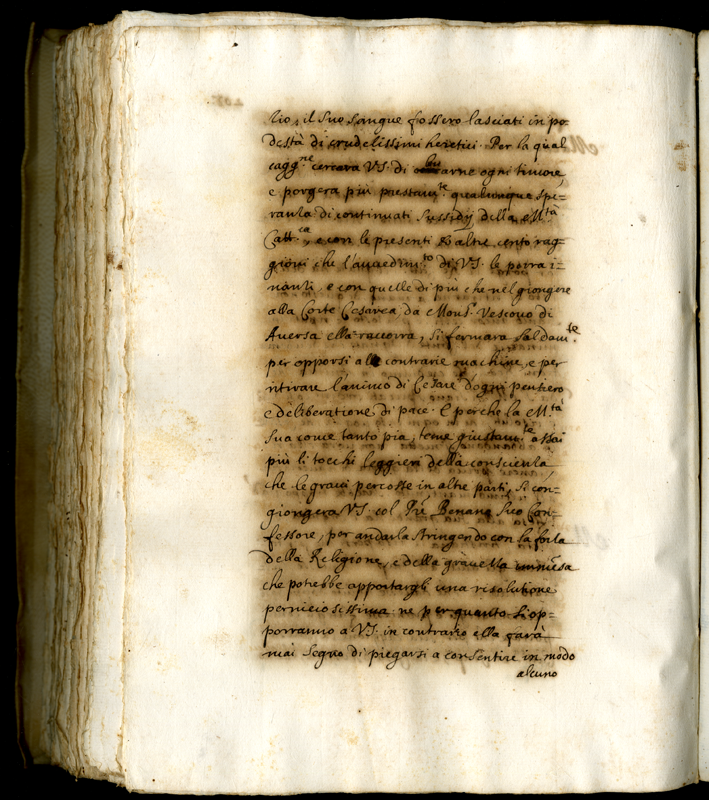 lio, il suo sangue fossero lasciati in po-
destà di crudelissimi heretici. Per la qual
cagg.ne cercara V.S. di levarne ogni timore,
e porgera più prestam.te qualunque spe=
ranza di continuati sussidij della M.tà
Catt.ca, e con le presenti et altre cento rag=
gioni che l'avvedim.to di V.S. le porra i=
nanzi, e con quelle di più che nel giongere
alla Corte Cesarea da Mons.r Vescovo di
Aversa ella raccorra, si fermara saldam.te
per opporsi alle contrarie machine, e per
ritirare l'animo di Cesare d'ogni pensiero
e deliberatione di pace. E perche la M.tà
Sua come tanto pia, teme giustam.te assai
più li tocchi leggieri della conscienza,
che le gravi percosse in altre parti, si con-
giongera V.S. col Pre Benana suo Con-
fessore, per andarla stringendo con la forza
della Religione, e della gravezza immensa
che potrebbe apportargli una risolutione
perniciosissima ne per quanto s'op=
porranno a V.S. in contrario ella farà
mai segno di piegarsi a consentire in modo
alcuno